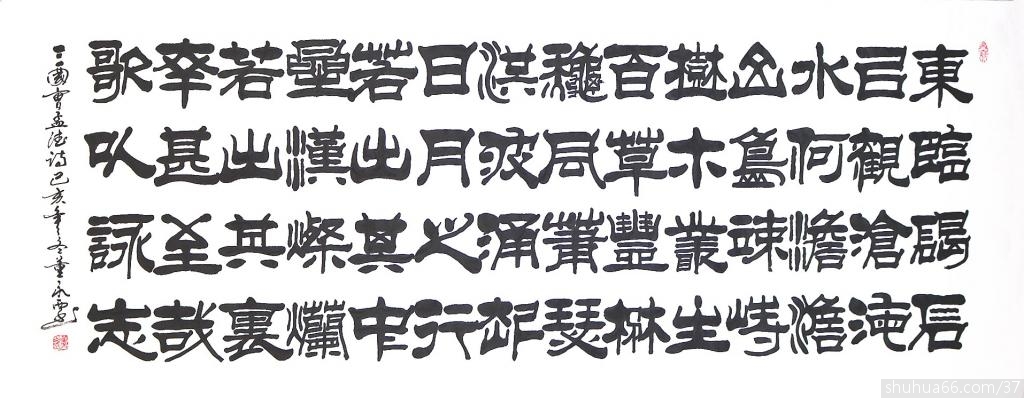 東臨碣石
㠯觀滄海
水何澹澹
山島竦峙
樹木叢生
百草豐楙
穐風蕭瑟
洪波涌起
日月之行
若出其中
星漢燦爛
若出其裏
幸甚至哉
歌以詠志
三國曹孟德诗己亥年冬董永
shuhua66.com/37